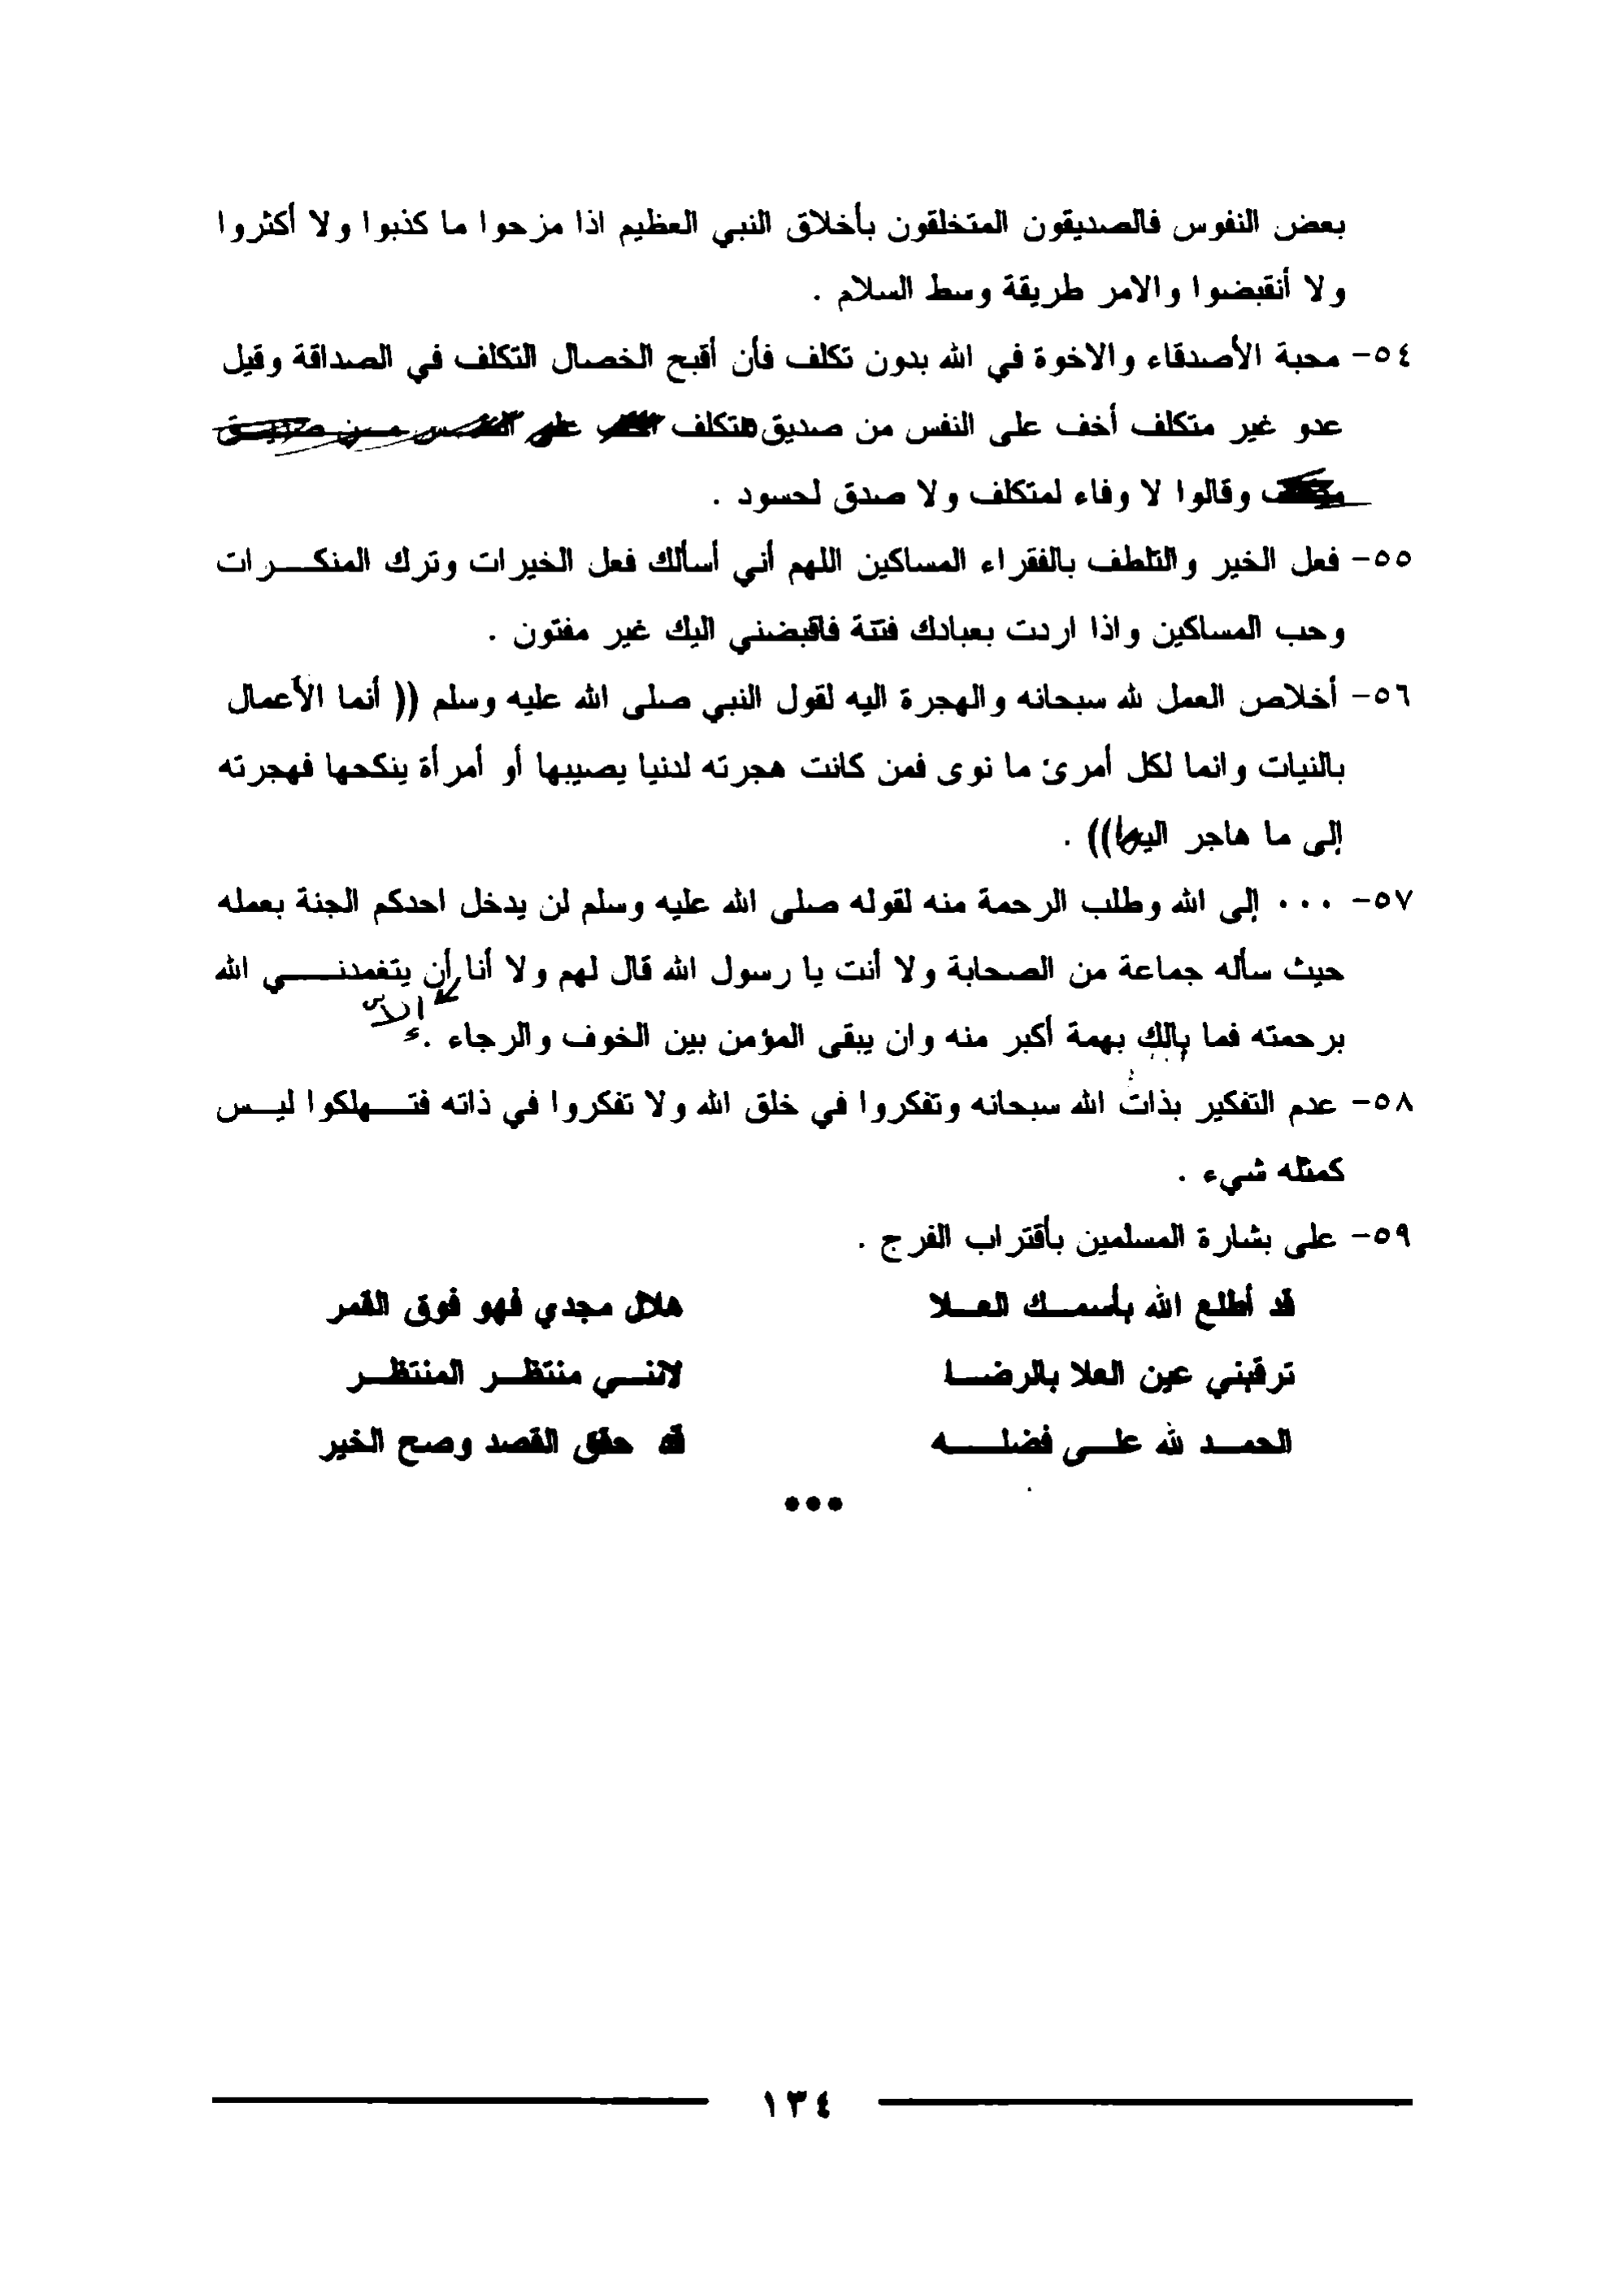 بعض النفوس فالصديقون المتخلقون بأخلاق النبي العظيم اذا مزحوا ما كذبوا ولا أكثروا
ولا أنقبضوا والامر طريقة وسط السلام .
٥٤- محبة الأصدقاء والاخوة في الله بدون تكلف فأن أقبح الخصال التكلف في الصداقة وقيل
عدو غير متكلف أخف على النفس من صديق متكلف
وقالوا لا وفاء لمتكلف ولا صدق لحسود .
٥٥- فعل الخير والتلطف بالفقراء المساكين اللهم أني أسألك فعل الخيرات وترك المنكرات
وحب المساكين واذا اردت بعبادك فتنة فاقبضني اليك غير مفتون .
٥٦- أخلاص العمل لله سبحانه والهجرة اليه لقول النبي صلى الله عليه وسلم (( أنما الأعمال
بالنيات وانما لكل أمرئ ما نوى فمن كانت هجرته لدنيا يصيبها أو أمرأة ينكحها فهجرته
إلى ما هاجر اليها)) .
٥٧- ... إلى الله وطلب الرحمة منه لقوله صلى الله عليه وسلم لن يدخل احدكم الجنة بعمله
حيث سأله جماعة من الصحابة ولا أنت يا رسول الله قال لهم ولا أنا أن يتغمدني الله
إلا
برحمته فما بالك بهمة أكبر منه وان يبقى المؤمن بين الخوف والرجاء .
٥٨- عدم التفكير بذات الله سبحانه وتفكروا في خلق الله ولا تفكروا في ذاته فتهلكوا ليس
كمثله شيء .
٥٩- على بشارة المسلمين بأقتراب الفرج .
قد أطلع الله بأسمك العلا هلال مجدي فهو فوق القمر
ترقبني عين العلا بالرضا لانني منتظر المنتظر
الحمد لله على فضله قد حقق القصد وصح الخبر
•••
١٣٤